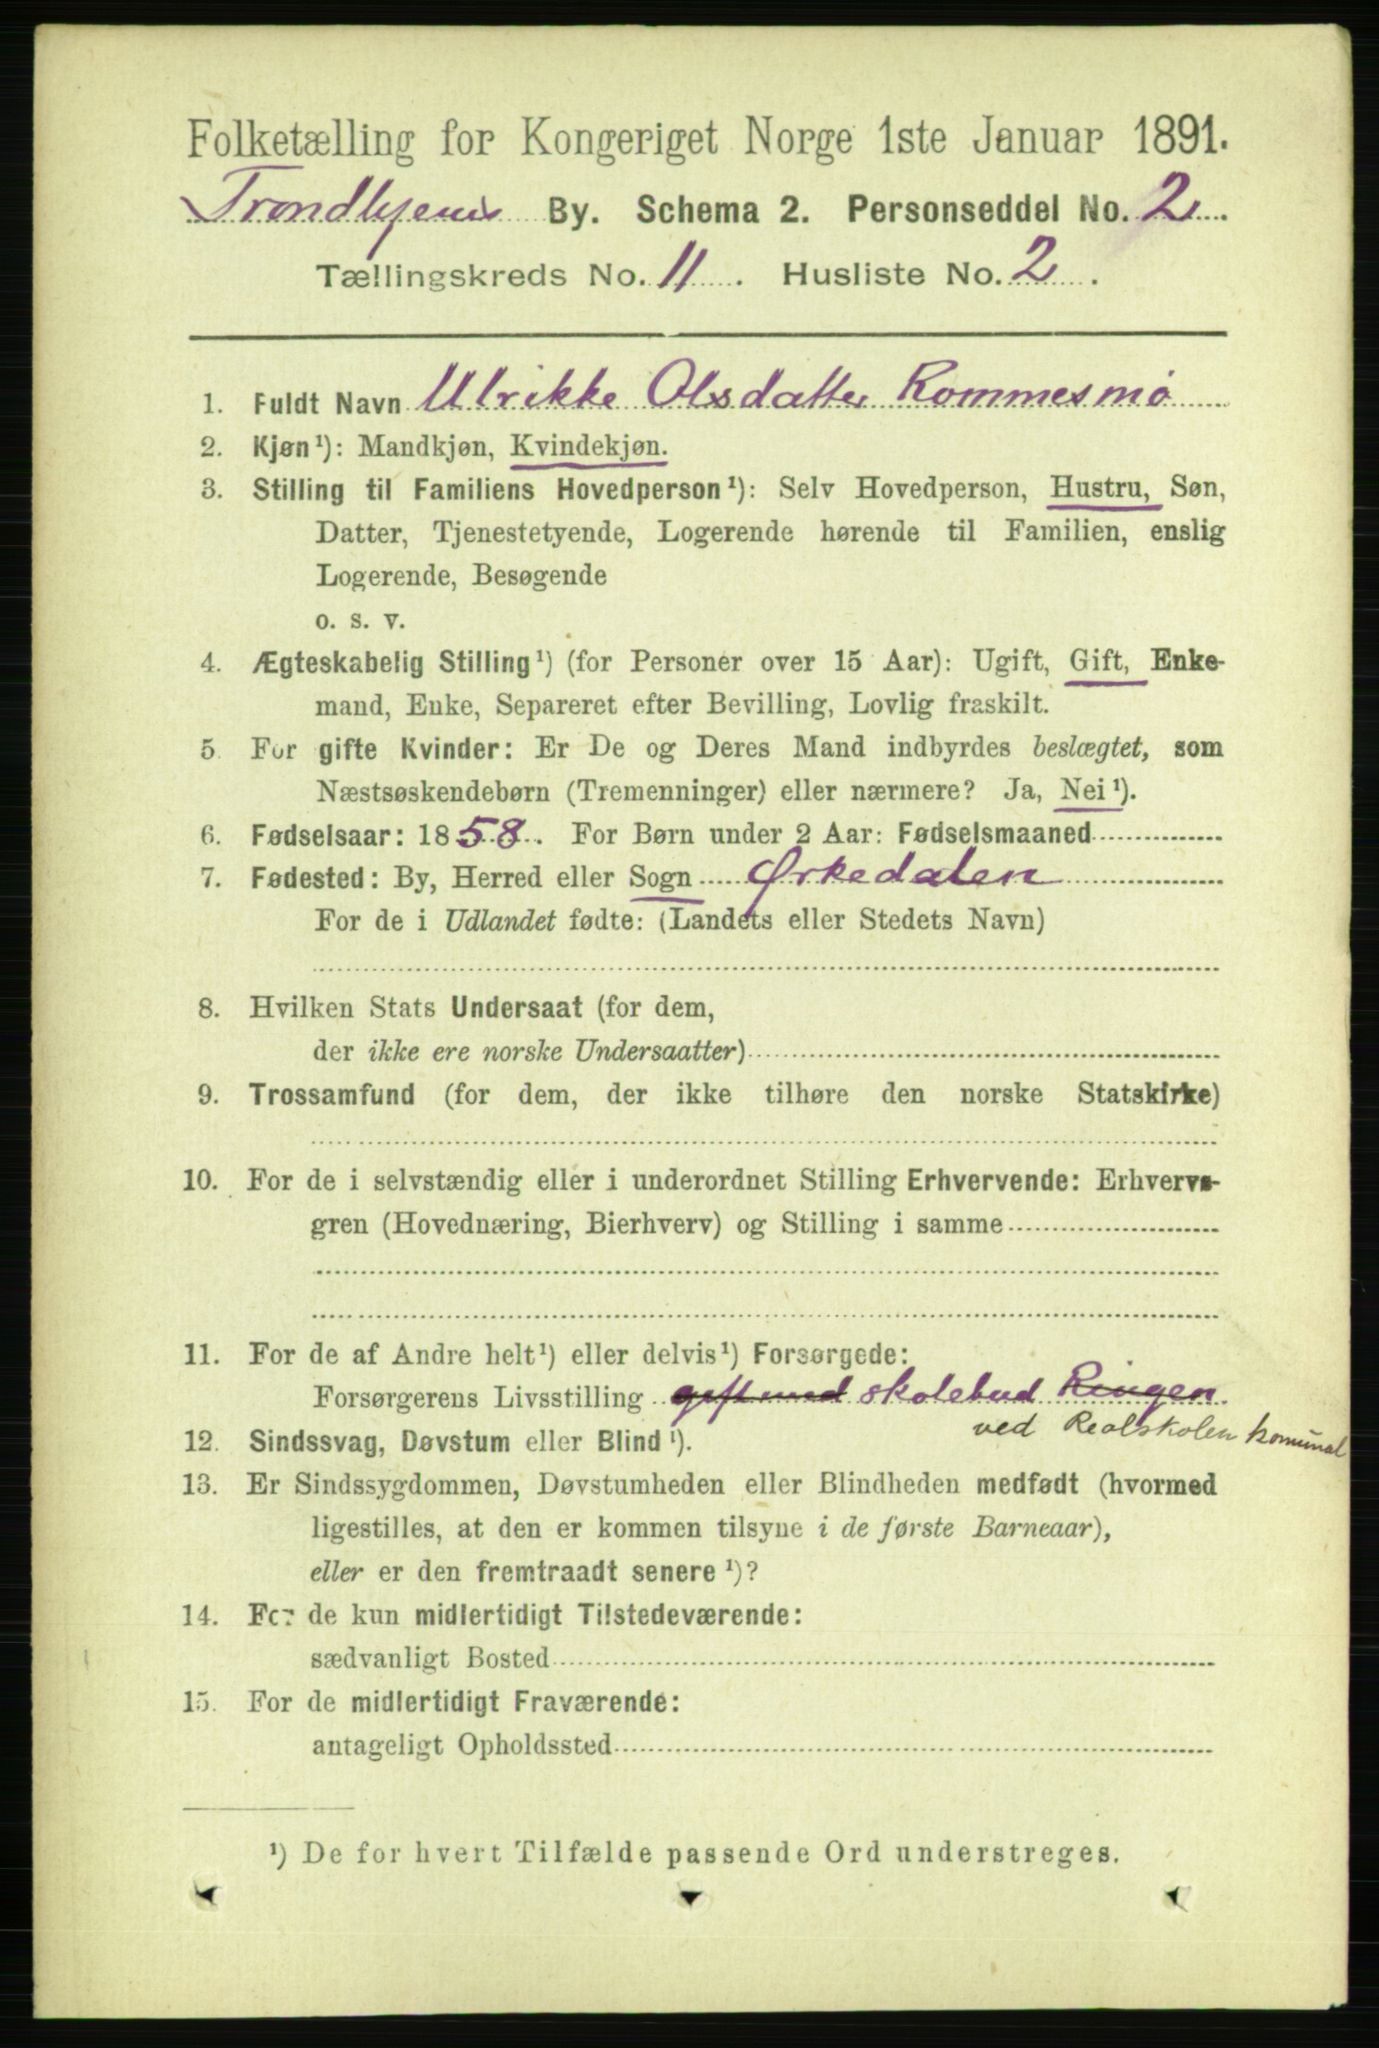 Folketælling for Kongeriget Norge 1ste Januar 1891.
Trondhjems By. Schema 2. Personseddel No. 2
Tællingskreds No. 11. Husliste No. 2.
1. Fuldt Navn Ulrikke Olsdatter Rommesmo
2. Kjøn¹): Mandkjøn, Kvindekjøn.
3. Stilling til Familiens Hovedperson¹): Selv Hovedperson, Hustru, Søn,
Datter, Tjenestetyende, Logerende hørende til Familien, enslig
Logerende, Besøgende
o. s. v.
4. Ægteskabelig Stilling¹) (for Personer over 15 Aar): Ugift, Gift, Enke-
mand, Enke, Separeret efter Bevilling, Lovlig fraskilt.
5. For gifte Kvinder: Er De og Deres Mand indbyrdes beslægtet, som
Næstsøskendebørn (Tremenninger) eller nærmere? Ja, Nei¹).
6. Fødselsaar: 1858. For Børn under 2 Aar: Fødselsmaaned
7. Fødested: By, Herred eller Sogn Ørkedalen
For de i Udlandet fødte: (Landets eller Stedets Navn)
8. Hvilken Stats Undersaat (for dem,
der ikke ere norske Undersaatter)
9. Trossamfund (for dem, der ikke tilhøre den norske Statskirke)
10. For de i selvstændig eller i underordnet Stilling Erhvervende: Erhvervs-
gren (Hovednæring, Bierhverv) og Stilling i samme
11. For de af Andre helt¹) eller delvis¹) Forsørgede:
Forsørgerens Livsstilling gift med skolebud Ringen
ved Realskolen komunal
12. Sindssvag, Døvstum eller Blind¹).
13. Er Sindssygdommen, Døvstumheden eller Blindheden medfødt (hvormed
ligestilles, at den er kommen tilsyne i de første Barneaar),
eller er den fremtraadt senere¹)?
14. For de kun midlertidigt Tilstedeværende:
sædvanligt Bosted
15. For de midlertidigt Fraværende:
antageligt Opholdssted
¹) De for hvert Tilfælde passende Ord understreges.